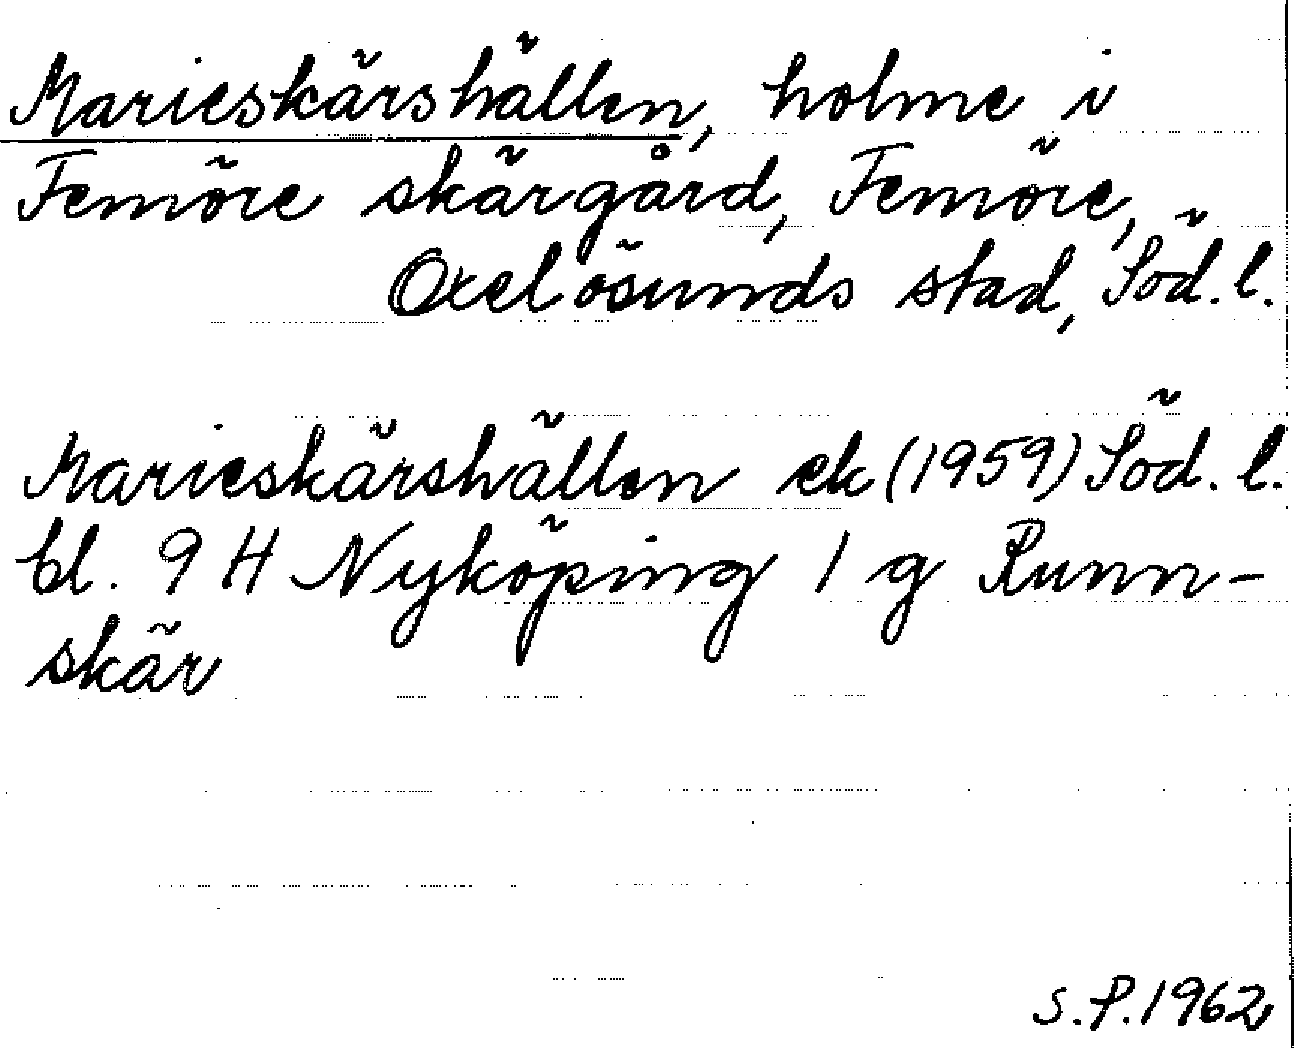 Marieskärshällen, holme i
Femöre skärgård, Femöre,
Oxelösunds stad, Söd. l.
Marieskärshällen ek (1959) Söd. l.
bl. 9 H Nyköping 1 g Runn-
skär
S.P. 1962